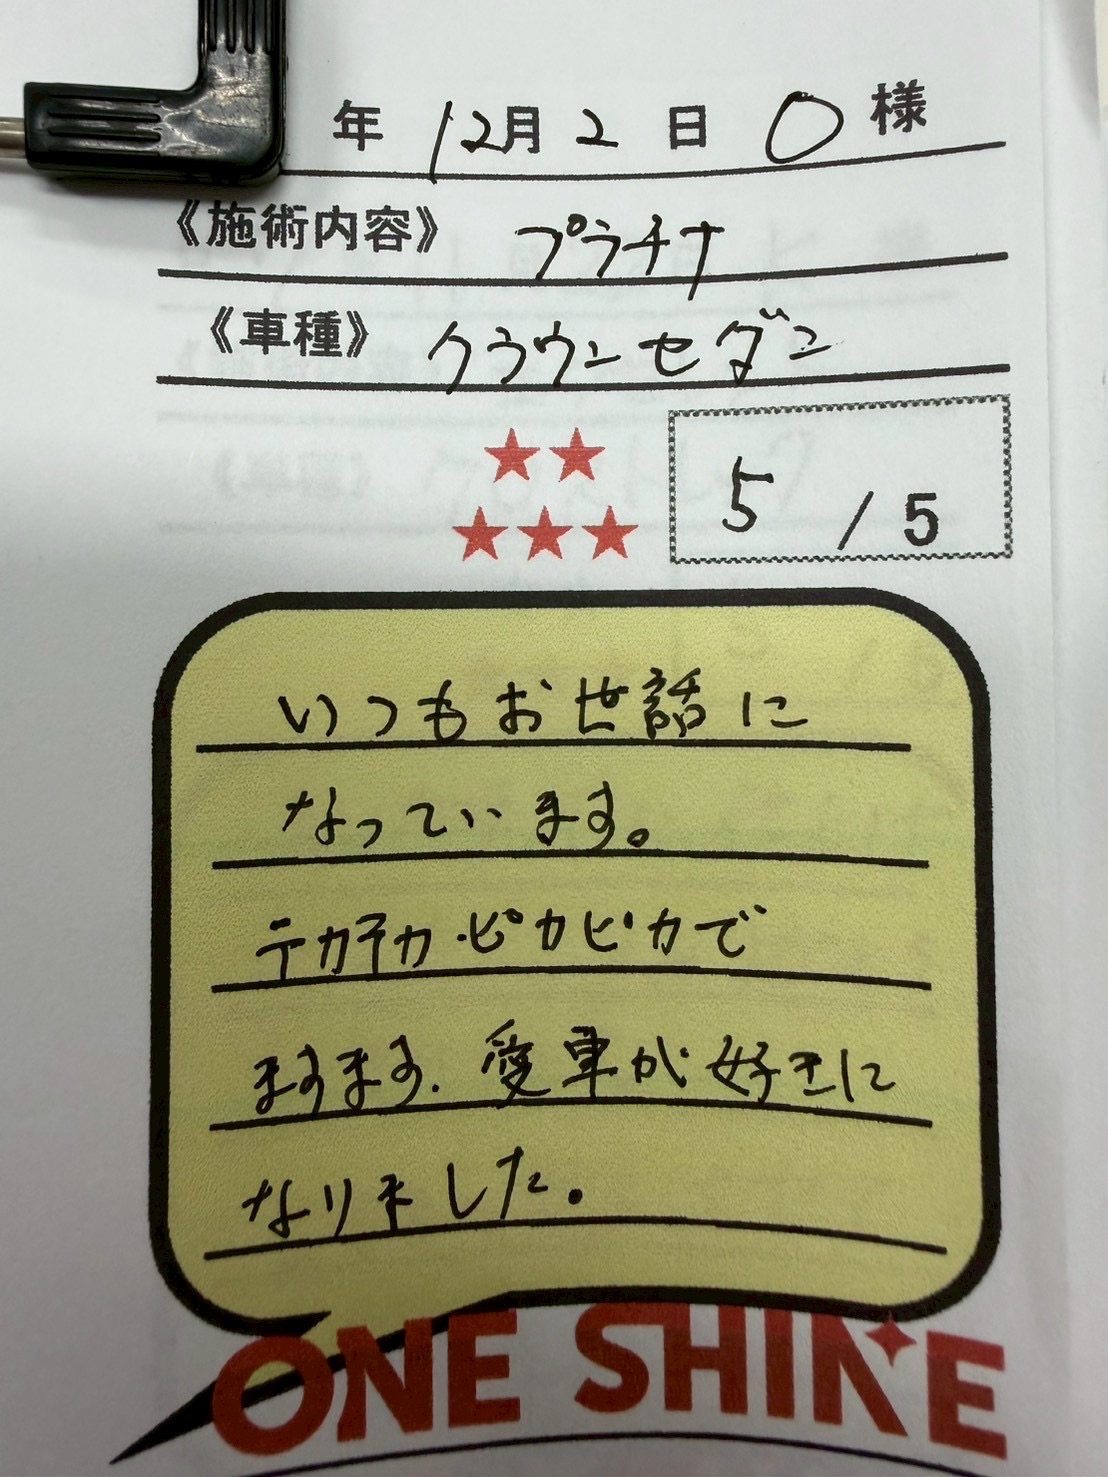 年 12月 2 日 O 様
《施術内容》 プラチナ
《車種》 クラウンセダン
★★
★★★
5 / 5
いつもお世話に
なっています。
テカテカ・ピカピカで
ますます、愛車が好きに
なりました。
ONE SHINE